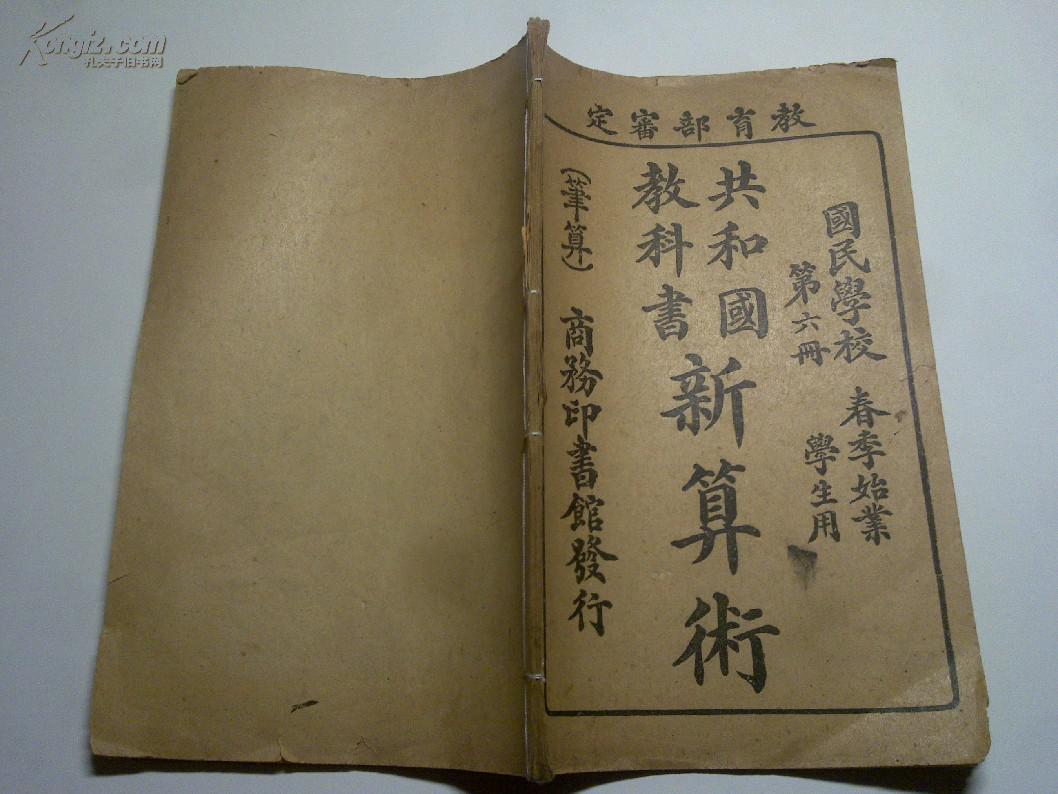 Kongfz.com
孔夫子旧书网
教育部審定
國民學校 春季始業
第六冊 學生用
共和國
教科書
新算術
(筆算) 商務印書館發行